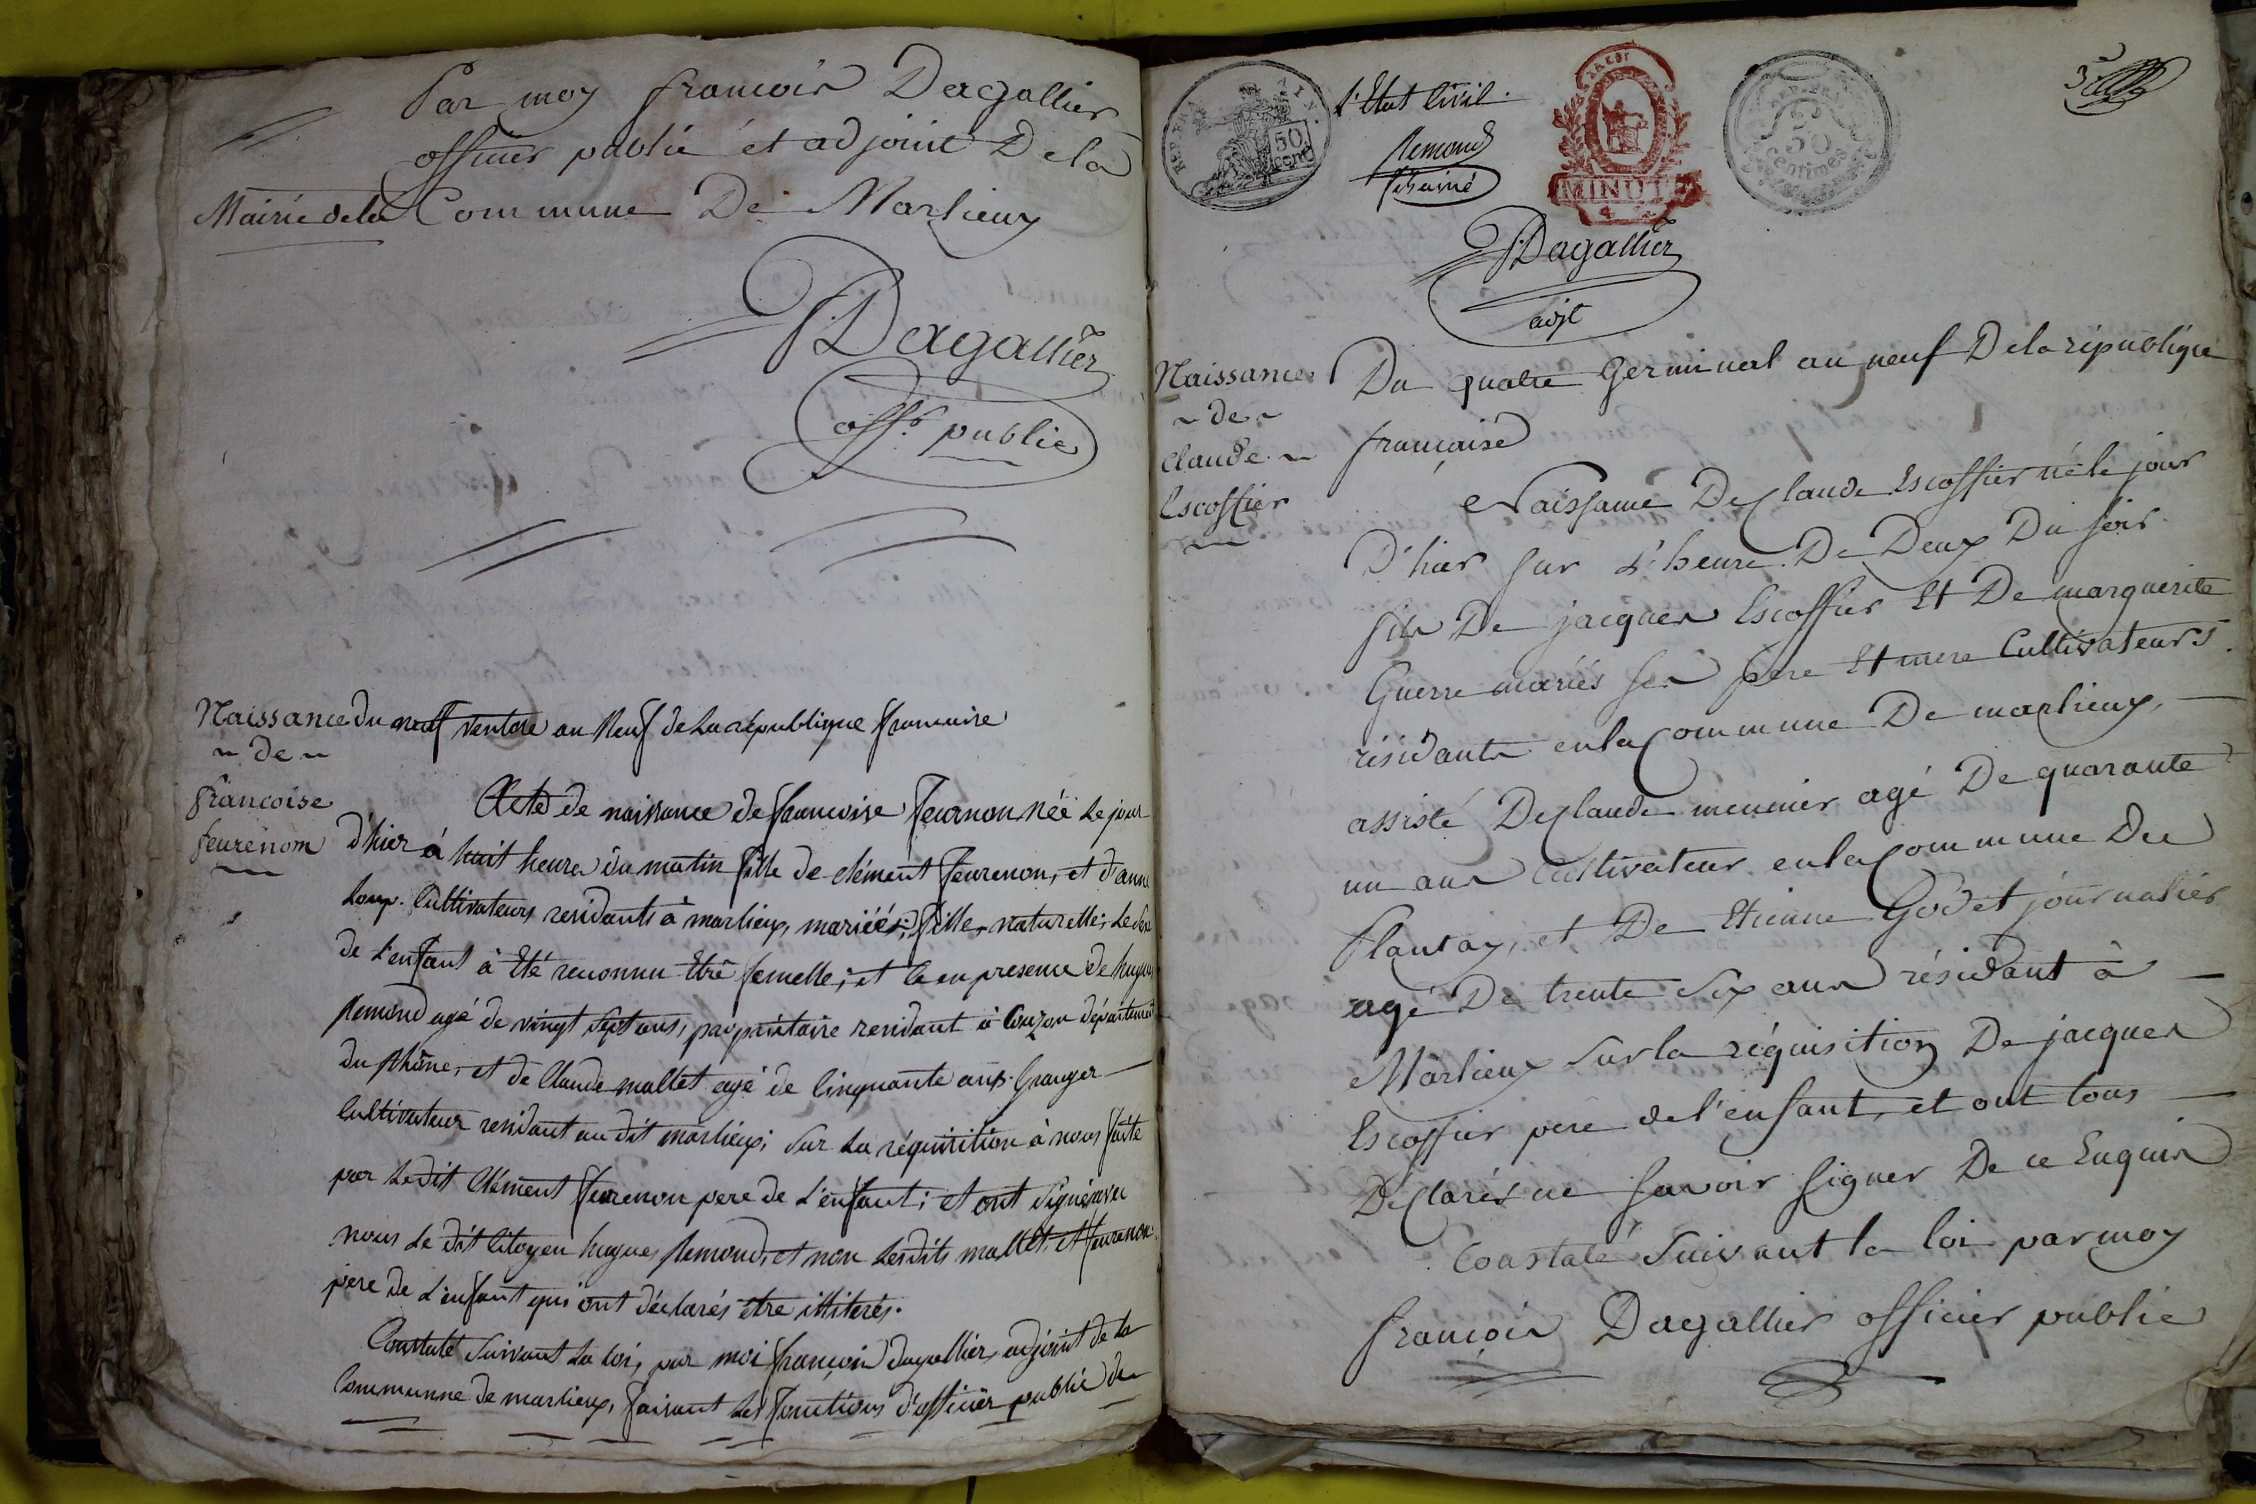 Par moy francois Dagallier
officier public et adjoint De la
Mairie de la Commune De Marlieux
Dagallier
offr public
Naissance
~ de ~
francoise
feurenom
Du neuf ventose an Neuf de La republique francaise
Acte de naissance de francoise feurnon née Le jour
d'hier à huit heure du matin fille de clément feurenon, et d'anne
Loup. Cultivateurs residants à marlieux, mariéés; fille naturelle; Le sexe
de L'enfant à Eté reconnu Etre femelle; et ce en presence de hugues
Remond agé de vingt Sept ans, propriétaire residant à Couzon département
du Rhône, et de Claude mallet agé de Cinquante ans. Granger
Cultivateur residant au dit marlieux; Sur La réquisition à nous faite
par Ledit Clément feurenon pere de L'enfant; et ont Signé avec
nous Le dit Citoyen hugues Remond, et non Lesdits mallet et feurenon.
pere de L'enfant qui ont déclarés être illiterés.
Constaté Suivant La Loi, par moi françois dagallier, adjoint de La
Commune de marlieux, faisant Les fonctions d'officier public de
L'Etat Civil.
Remond
REP. FRA
50
CENT
MINUTE
4
50
Centimes
3
Dagallier
adjt
Naissance
~ de ~
Claude ~
Escoffier
Du quatre Germinal an neuf De la république
française
Naissance De Claude Escoffier né le jour
D'hier sur L'heure De Deux Du soir
fils De jacques Escoffier Et De marguerite
Guerre mariés ses pere Et mere Cultivateurs
résidants en la Commune De marlieux,
assisté De Claude meunier agé De quarante
un ans Cultivateur en la Commune Du
Plantay, et De Etienne Godet journalier
agé De trente Six ans résidant à
Marlieux Sur la réquisition De jacques
Escoffier pere de l'enfant, et ont tous
Déclarés ne savoir signer De ce Enquis
Constaté Suivant la loi par moy
françois Dagallier officier public